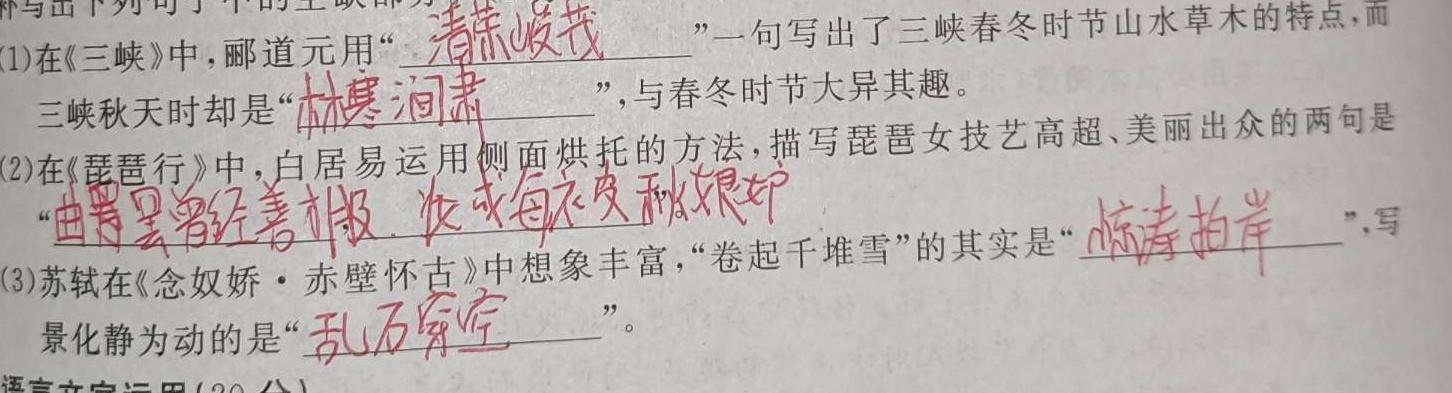 补写出下列句子中的空缺部分
(1)在《三峡》中，郦道元用“清荣峻茂”一句写出了三峡春冬时节山水草木的特点，而
三峡秋天时却是“林寒涧肃”，与春冬时节大异其趣。
(2)在《琵琶行》中，白居易运用侧面烘托的方法，描写琵琶女技艺高超、美丽出众的两句是
“曲罢曾经善才服 妆成每被秋娘妒
(3)苏轼在《念奴娇·赤壁怀古》中想象丰富，“卷起千堆雪”的其实是“惊涛拍岸”，写
景化静为动的是“乱石穿空”。
语言文字运用(20分)